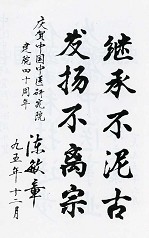 继承不泥古
发扬不离宗
庆贺中国中医研究院
建院四十周年
陈敏章
九五年十二月